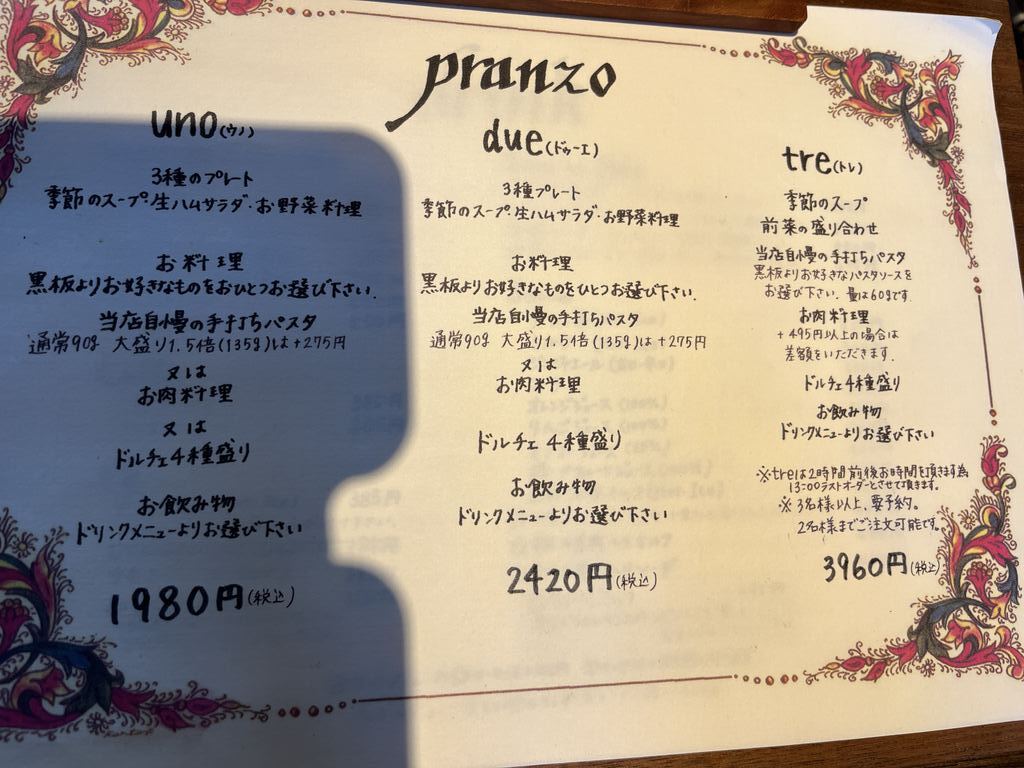 pranzo
uno(ウノ)
3種のプレート
季節のスープ・生ハムサラダ・お野菜料理
お料理
黒板よりお好きなものをおひとつお選び下さい.
当店自慢の手打ちパスタ
通常90g 大盛り1.5倍(135g)は+275円
又は
お肉料理
又は
ドルチェ4種盛り
お飲み物
ドリンクメニューよりお選び下さい
1980円(税込)
due(ドゥーエ)
3種プレート
季節のスープ・生ハムサラダ・お野菜料理
お料理
黒板よりお好きなものをひとつお選び下さい.
当店自慢の手打ちパスタ
通常90g 大盛り1.5倍(135g)は+275円
又は
お肉料理
ドルチェ4種盛り
お飲み物
ドリンクメニューよりお選び下さい
2420円(税込)
tre(トレ)
季節のスープ
前菜の盛り合わせ
当店自慢の手打ちパスタ
黒板よりお好きなパスタソースを
お選び下さい. 量は60gです.
お肉料理
+495円以上の場合は
差額をいただきます.
ドルチェ4種盛り
お飲み物
ドリンクメニューよりお選び下さい
※treは2時間前後お時間を頂きます為
13:00ラストオーダーとさせて頂きます.
※3名様以上、要予約。
2名様までご注文可能です.
3960円(税込)